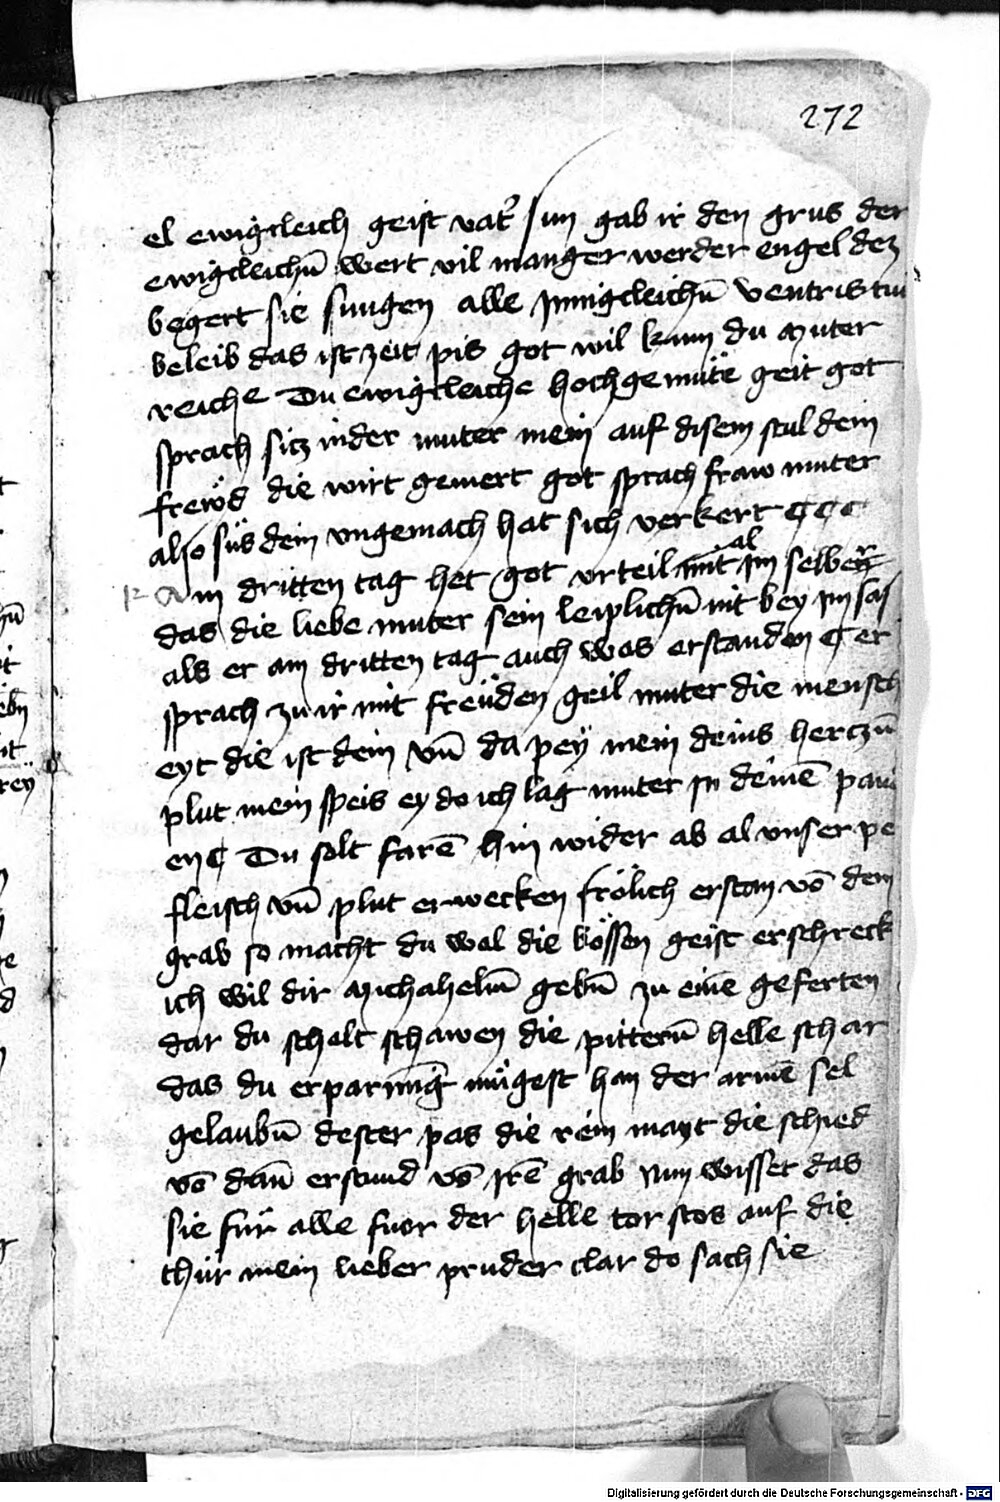 272
el ewigcleich geist vat͛ sun gab ir den grus der
ewigcleichn̄ wert vil manger werder engel dez
begert sie sungen alle Jnnigcleichn̄ ventris tui
beleib das ist zeit pis got wil kum du muter
reiche Du ewigcleiche hochgemüte geit got
sprach sicz nider muter mein auf disem stul dein
frewd die wirt gemert got sprach fraw muter
also süs dein vngemach hat sich verkert ¶ ¶ ¶
12 Am dritten tag het got vrteil mit al Jm selber
das die liebe muter sein leiplichn̄ nit bey Jm sas
als er am dritten tag auch was erstanden ¶ er
sprach zu ir mit freüden geil muter die mensch
eyt die ist dein vn̄ da pey mein deins herczn̄
plut mein speis ey do ich lag muter Jn deinē pau
en ¶ Du solt farē hin wider ab al vnser pe
fleisch vn̄ plut erwecken frölich erstan vō dem
grab so macht du wal die bössen geist erschreck
ich wil dir Michahelm̄ gebn̄ zu einē geferten
dar du scholt schawen die pittern̄ helle schar
das du erparmḡ mügest han der armē sel
gelaubn̄ dester pas die rein mayt die schied
vō dan̄ erstund vō Jrē grab Nun wisset das
sie für alle fuor der helle tor stos auf die
thür mein lieber pruder clar do sach sie
Digitalisierung gefördert durch die Deutsche Forschungsgemeinschaft - DFG